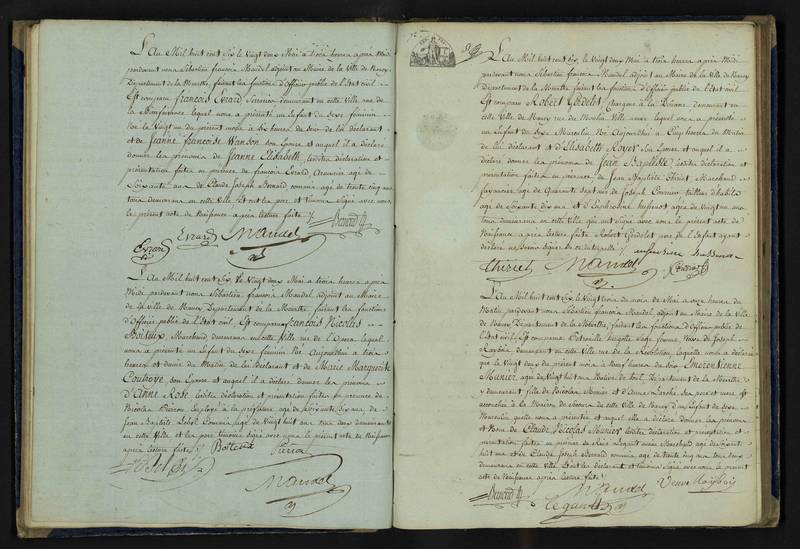 L'An Mil huit cent six le Vingt deux Mai à trois heures après Midi
pardevant nous Sébastien françois Mandel adjoint au Maire de la Ville de Nancy
Département de la Meurthe, faisant les fonctions d'Officier public de l'Etat civil
Est comparu françois Evrard Serrurier demeurant en cette Ville rue de
la Bienfaisance lequel nous a présenté un Enfant du sexe féminin
Né le Vingt un du présent mois à six heures du soir de lui déclarant
et de Jeanne françoise Wanson son Epouse et auquel il a déclaré
donner les prénoms de Jeanne Elisabeth, lesdites déclaration et
présentation faites en présence de françois Evrard âgé de
Soixante ans de Claude Joseph Bernard commis âgé de trente cinq ans
tous demeurans en cette Ville Et ont les père et témoins signé avec nous
le présent acte de Naissance après lecture faite
Evrard Mandel Bernard
Evrard
L'An Mil huit cent six le Vingt deux Mai à trois heures après
Midi pardevant nous Sébastien françois Mandel adjoint au Maire
de la Ville de Nancy Département de la Meurthe, faisant les fonctions
d'Officier public de l'Etat civil, Est comparu françois Nicolas
Marchand demeurant en cette Ville rue de l'Opera lequel
nous a présenté un Enfant du sexe féminin Né Aujourd'hui à trois
heures et demi du Matin de lui déclarant et de Marie Marguerite
son Epouse et auquel il a déclaré donner les prénoms
d'Anne Rose lesdites déclaration et présentation faites en présence de
Nicolas Employé à la préfecture âgé de Soixante six ans de
Jean Baptiste Commis âgé de Vingt huit ans tous deux demeurans
en cette Ville et les père témoins signé avec nous le présent acte de Naissance
après lecture faite
Mandel
L'An Mil huit cent six le Vingt deux Mai à trois heures après Midi
pardevant nous Sébastien françois Mandel adjoint au Maire de la Ville de Nancy
Département de la Meurthe faisant les fonctions d'Officier public de l'Etat civil
Est comparu Robert Godelot à la Douane demeurant en
cette Ville de Nancy rue du Moulin lequel nous a présenté
un Enfant du sexe Masculin Né Aujourd'hui à Cinq heures du Matin
de lui déclarant et d'Elisabeth Royer son Epouse et auquel il a
déclaré donner les prénoms de Jean Baptiste lesdites déclaration et
présentation faites en présence de Jean Baptiste Thiriet Marchand
fayancier âgé de Quarante Sept ans de Joseph tailleur d'habits
âgé de Soixante dix ans et d'Euphrosine âgée de Vingt un ans
tous demeurans en cette Ville qui ont signé avec nous le présent acte de
Naissance après lecture faite Robert Godelot père de l'Enfant ayant
déclaré ne savoir signer de ce interpellé
Thiriet Mandel
L'An Mil huit cent six le Vingt trois du mois de Mai à onze heures du
Matin pardevant nous Sébastien françois Mandel adjoint au Maire de la Ville
de Nancy Département de la Meurthe, faisant les fonctions d'Officier public de
l'Etat civil Est comparue Sage femme Veuve de Joseph
demeurant en cette Ville rue de la Révolution laquelle nous a déclaré
que le Vingt deux du présent mois à Neuf heures du soir Emerentienne
Munier âgée de Vingt huit ans Native de Toul Département de la Meurthe
y demeurant fille de Nicolas Munier et d'Anne ses père et mère est
accouchée à la Maison de Secours de cette Ville de Nancy d'un Enfant du sexe
Masculin qu'elle nous a présenté et auquel elle a déclaré donner les prénoms
et Nom de Claude Nicolas Munier lesdites déclaration et
présentation faites en présence de Legault Marchand âgé de
huit ans et de Claude Joseph Bernard commis âgé de trente cinq ans tous deux
demeurans en cette Ville Et ont les déclarant et témoins signé avec nous le présent
acte de Naissance après lecture faite
Bernard Mandel Veuve
Legault